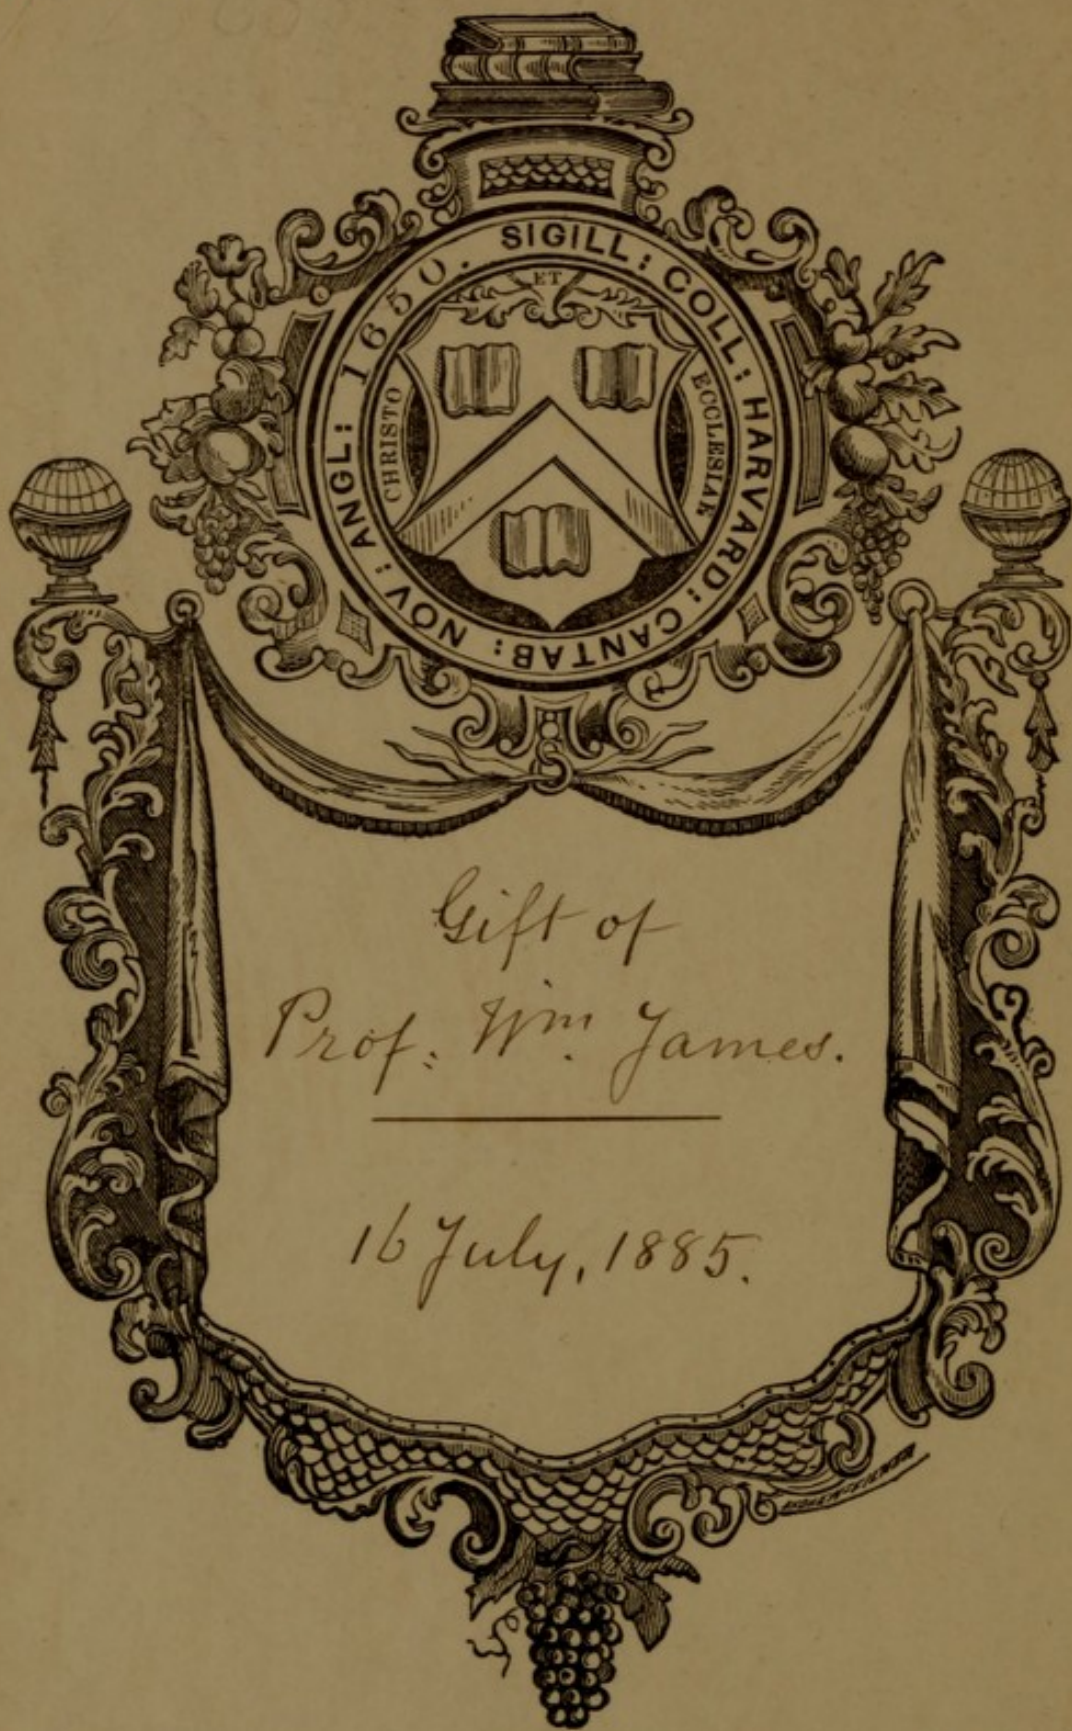 SIGILL: COLL: HARVARD: CANTAB: NOV: ANGL: 1650.
CHRISTO
ET
ECCLESIAE
Gift of
Prof. Wm. James.
16 July, 1885.